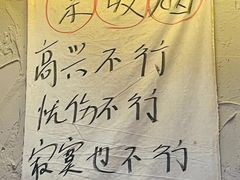 禁吸烟
高兴不行
忧伤不行
寂寞也不行